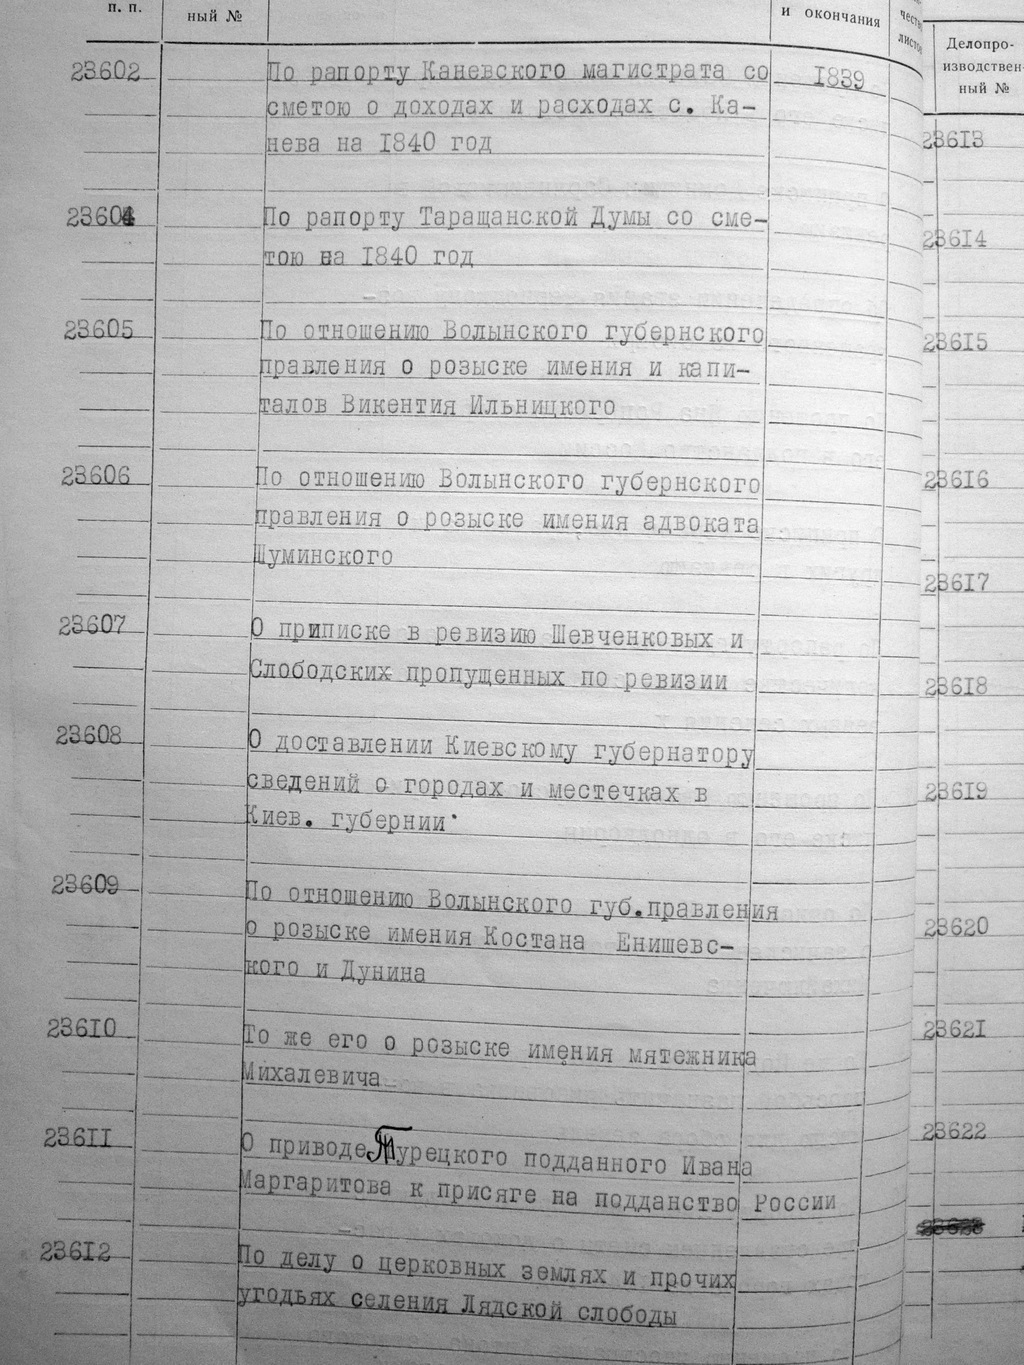 п. п.
ный №
и окончания
23602 По рапорту Каневского магистрата со 1839
сметою о доходах и расходах с. Ка-
нева на 1840 год
23604 По рапорту Таращанской Думы со сме-
тою на 1840 год
23605 По отношению Волынского губернского
правления о розыске имения и капи-
талов Викентия Ильницкого
23606 По отношению Волынского губернского
правления о розыске имения адвоката
Шуминского
23607 О приписке в ревизию Шевченковых и
Слободских пропущенных по ревизии
23608 О доставлении Киевскому губернатору
сведений о городах и местечках в
Киев. губернии
23609 По отношению Волынского губ.правления
о розыске имения Костана Енишевс-
кого и Дунина
23610 То же его о розыске имения мятежника
Михалевича
23611 О приводе Турецкого подданного Ивана
Маргаритова к присяге на подданство России
23612 По делу о церковных землях и прочих
угодьях селения Лядской слободы
Делопро-
изводствен-
ный №
23613
23614
23615
23616
23617
23618
23619
23620
23621
23622
23623